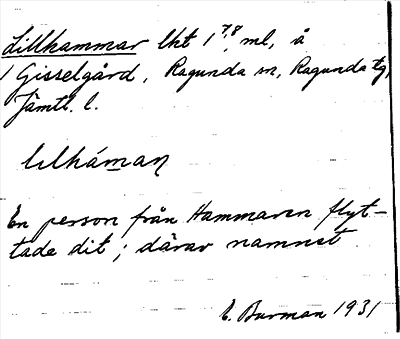 Lillhammar lht 1 7,8 ml, å
1 Gisselgård, Ragunda sn, Ragunda tg,
Jämtl. l.
lılháman
En person från Hammaren flyt-
tade dit; därav namnet
E. Burman 1931